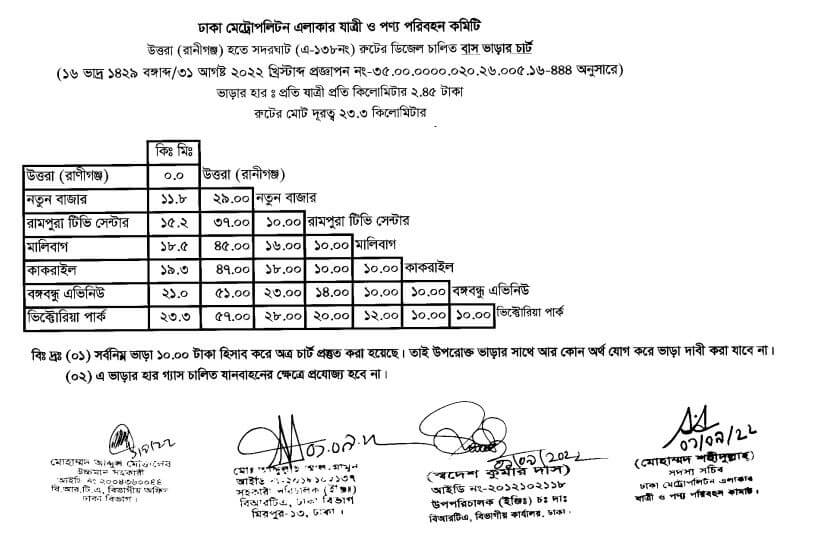 ঢাকা মেট্রোপলিটন এলাকার যাত্রী ও পণ্য পরিবহন কমিটি
উত্তরা (রানীগঞ্জ) হতে সদরঘাট (এ-১৩৮নং) রুটের ডিজেল চালিত বাস ভাড়ার চার্ট
(১৬ ভাদ্র ১৪২৯ বঙ্গাব্দ/৩১ আগষ্ট ২০২২ খ্রিস্টাব্দ প্রজ্ঞাপন নং-৩৫.০০.০০০০.০২০.২৬.০০৫.১৬-৪৪৪ অনুসারে)
ভাড়ার হার ঃ প্রতি যাত্রী প্রতি কিলোমিটার ২.৪৫ টাকা
রুটের মোট দূরত্ব ২৩.৩ কিলোমিটার
কিঃ মিঃ
উত্তরা (রাণীগঞ্জ) ০.০ উত্তরা (রানীগঞ্জ)
নতুন বাজার ১১.৮ ২৯.০০ নতুন বাজার
রামপুরা টিভি সেন্টার ১৫.২ ৩৭.০০ ১০.০০ রামপুরা টিভি সেন্টার
মালিবাগ ১৮.৫ ৪৫.০০ ১৬.০০ ১০.০০ মালিবাগ
কাকরাইল ১৯.৩ ৪৭.০০ ১৮.০০ ১০.০০ ১০.০০ কাকরাইল
বঙ্গবন্ধু এভিনিউ ২১.০ ৫১.০০ ২৩.০০ ১৪.০০ ১০.০০ ১০.০০ বঙ্গবন্ধু এভিনিউ
ভিক্টোরিয়া পার্ক ২৩.৩ ৫৭.০০ ২৮.০০ ২০.০০ ১২.০০ ১০.০০ ১০.০০ ভিক্টোরিয়া পার্ক
বিঃ দ্রঃ (০১) সর্বনিম্ন ভাড়া ১০.০০ টাকা হিসাব করে অত্র চার্ট প্রস্তুত করা হয়েছে। তাই উপরোক্ত ভাড়ার সাথে আর কোন অর্থ যোগ করে ভাড়া দাবী করা যাবে না।
(০২) এ ভাড়ার হার গ্যাস চালিত যানবাহনের ক্ষেত্রে প্রযোজ্য হবে না।
মোহাম্মদ আব্দুল
আইডি নং-২০০৪৩৬০০৪৪
বি.আর.টি.এ, বিভাগীয় অফিস
ঢাকা বিভাগ।
সহকারী পরিচালক (ইঞ্জিঃ)
বিআরটিএ, ঢাকা বিভাগ
মিরপুর-১৩, ঢাকা।
(স্বদেশ কুমার দাস)
আইডি নং-২০১২১০২১১৮
উপপরিচালক (ইঞ্জিঃ) চঃ দাঃ
বিআরটিএ, বিভাগীয় কার্যালয়, ঢাকা।
০১/০৯/২২
(মোহাম্মদ শহীদুল্লাহ)
সদস্য সচিব
ঢাকা মেট্রোপলিটন এলাকার
যাত্রী ও পণ্য পরিবহন কমিটি।